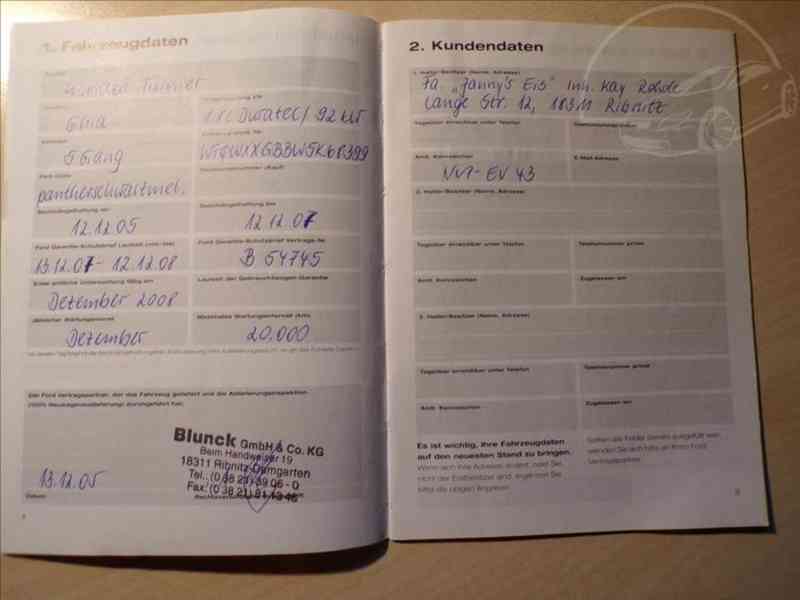 1. Fahrzeugdaten
Mondeo Turnier
Ghia
Duratec / 92 kW
5 Gang
pantherschwarzmet.
12.12.05
12.12.07
Ford Garantie-Schutzbrief Laufzeit (von-bis)
Ford Garantie-Schutzbrief Vertrags-Nr.
13.12.07 - 12.12.08
B 54745
Laufzeit der Gebrauchtwagen-Garantie
Dezember 2008
Jährlicher Wartungsmonat
Maximales Wartungsintervall (km)
Dezember
20.000
Der Ford Vertragspartner, der das Fahrzeug geliefert und die Ablieferungsinspektion
(100% Neuwagenauslieferung) durchgeführt hat:
Blunck GmbH & Co. KG
Beim Handweiser 19
18311 Ribnitz-Damgarten
Tel.: (0 38 21) 39 06 - 0
Fax: (0 38 21) 81 13 48
13.12.05
Datum
2. Kundendaten
1. Halter/Besitzer (Name, Adresse)
Fa. "Janny's Eis" Inh. Kay Rohde
Lange Str. 12, 18311 Ribnitz
Tagsüber erreichbar unter Telefon
Telefonnummer privat
Amtl. Kennzeichen
E-Mail-Adresse
NVP-EV 43
2. Halter/Besitzer (Name, Adresse)
Tagsüber erreichbar unter Telefon
Telefonnummer privat
Amtl. Kennzeichen
Zugelassen am
3. Halter/Besitzer (Name, Adresse)
Tagsüber erreichbar unter Telefon
Telefonnummer privat
Amtl. Kennzeichen
Zugelassen am
Es ist wichtig, Ihre Fahrzeugdaten
auf den neuesten Stand zu bringen.
Wenn sich Ihre Adresse ändert oder Sie
nicht der Erstbesitzer sind, ergänzen Sie
bitte die obigen Angaben.
Sollten alle Felder bereits ausgefüllt sein,
wenden Sie sich bitte an Ihren Ford
Vertragspartner.